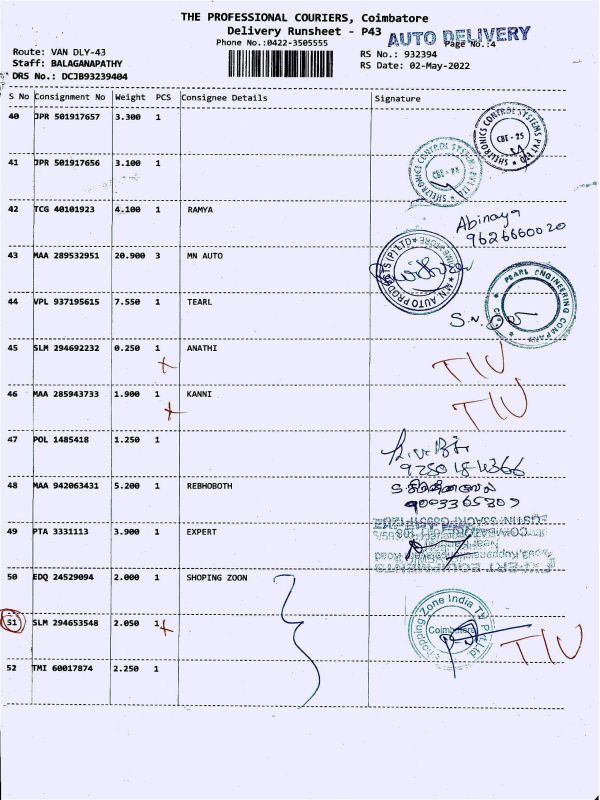 THE PROFESSIONAL COURIERS, Coimbatore
Delivery Runsheet - P43
AUTO DELIVERY
Phone No.:0422-3505555
Page No.:4
Route: VAN DLY-43
RS No.: 932394
Staff: BALAGANAPATHY
RS Date: 02-May-2022
DRS No.: DCJB93239404
S No Consignment No Weight PCS Consignee Details Signature
40 JPR 501917657 3.300 1
SHELTRONICS CONTROL SYSTEMS PVT LTD
CBE - 25
41 JPR 501917656 3.100 1
SHELTRONICS CONTROL SYSTEMS PVT LTD
CBE - 25
42 TCG 40101923 4.100 1 RAMYA
Abinaya
9626660020
43 MAA 289532951 20.900 3 MN AUTO
M.N AUTO PRODUCTS (P) LTD
44 VPL 937195615 7.550 1 TEARL
PEARL ENGINEERING COMPANY
45 SLM 294692232 0.250 1 ANATHI
46 MAA 285943733 1.900 1 KANNI
47 POL 1485418 1.250 1
48 MAA 942063431 5.200 1 REBHOBOTH
49 PTA 3331113 3.900 1 EXPERT
50 EDQ 24529094 2.000 1 SHOPING ZOON
51 SLM 294653548 2.050 1
Shopping Zone India TV Pvt Ltd.
Coimbatore
52 TMI 60017874 2.250 1